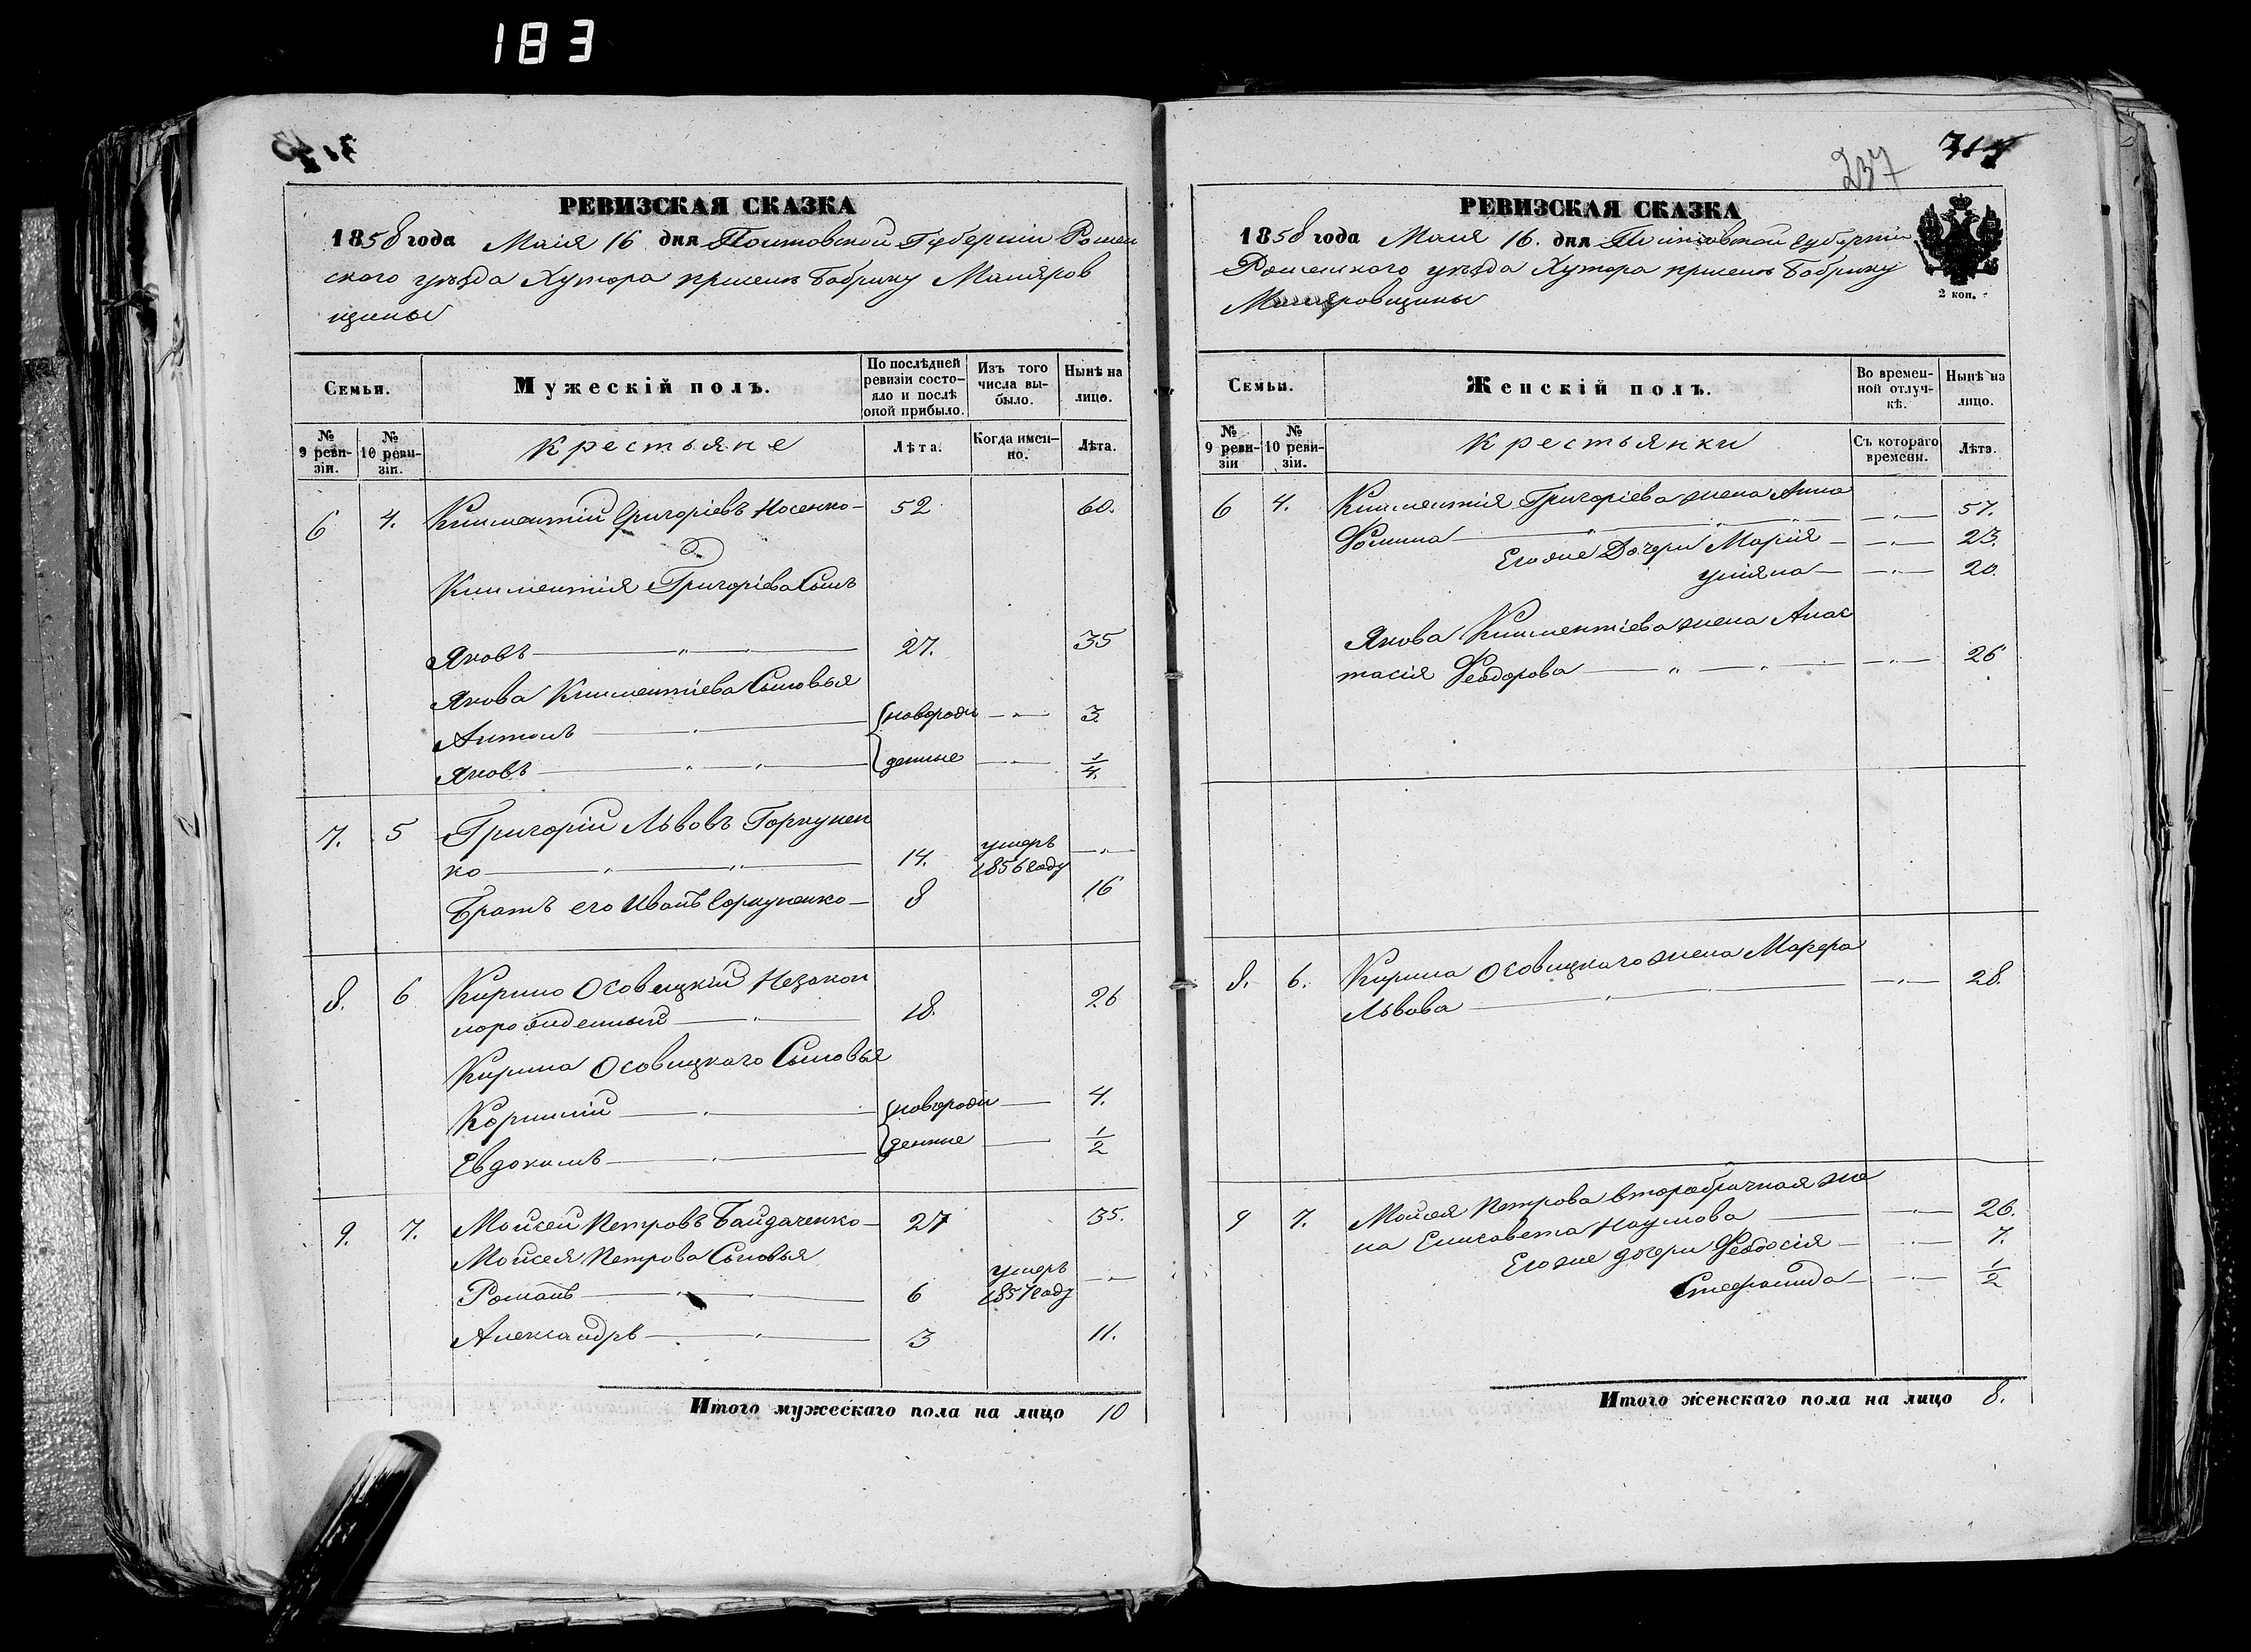 183
237
РЕВИЗСКАЯ СКАЗКА
1858 года Маія 16 дня Полтовской Губерніи Ромен
ского уѣзда Хутора
щины
Семьи.
Мужескій полъ.
По послѣдней ревизіи состояло и послѣ оной прибыло.
Изъ того числа выбыло.
Нынѣ на лицо.
№ 9 ревизіи.
№ 10 ревизіи.
Крестьяне
Лѣта.
Когда именно.
Лѣта.
6 4. Климентій Григоріевъ Носенко 52 60.
Климентія Григоріева Сынъ
Яковъ 27. 35
Якова Климентіева Сыновья
Антонъ новорож 3.
Яковъ денные 1/4.
7. 5 Григорій Львовъ Горкунен
ко 14. умеръ 1856 году
Братъ его Иванъ Горкуненко 8 16
8. 6 Кирило Осовицкій Незакон
норожденный 18. 26
Кирила Осовицкаго Сыновья
Корнилій новорож 4.
Евдокимъ денные 1/2
9. 7. Мойсей Петровъ Байдаченко 27 35.
Мойсея Петрова Сыновья
Романъ 6 умеръ 1857 году
Александръ 3 11.
Итого мужескаго пола на лицо 10
РЕВИЗСКАЯ СКАЗКА
1858 года Маия 16. дня Полтовской Губернии
Роменского уѣзда Хутора
2 коп.
Семьи.
Женскій полъ.
Во временной отлучкѣ.
Нынѣ на лицо.
№ 9 ревизіи
№ 10 ревизіи.
Крестьянки
Съ котораго времени.
Лѣта.
6 4. Климентія Григоріева жена Анна
Фомина 57.
Его же Дочери Марія 23.
Уліяна 20.
Якова Климентіева жена Анас
тасія Феодорова 26
8. 6. Кирила Осовицкаго жена Марфа
Львова 28.
9 7. Мойсея Петрова вторабрачная же
на Елисавета Наумова 26.
Его же дочери Феодосія 7.
Стефанида 1/2
Итого женскаго пола на лицо 8.